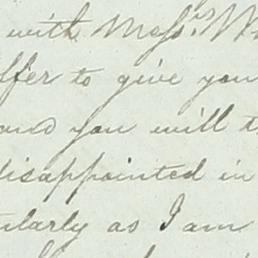 with Messrs. W
ffer to give you
and you will t
disappointed in
ularly as I am